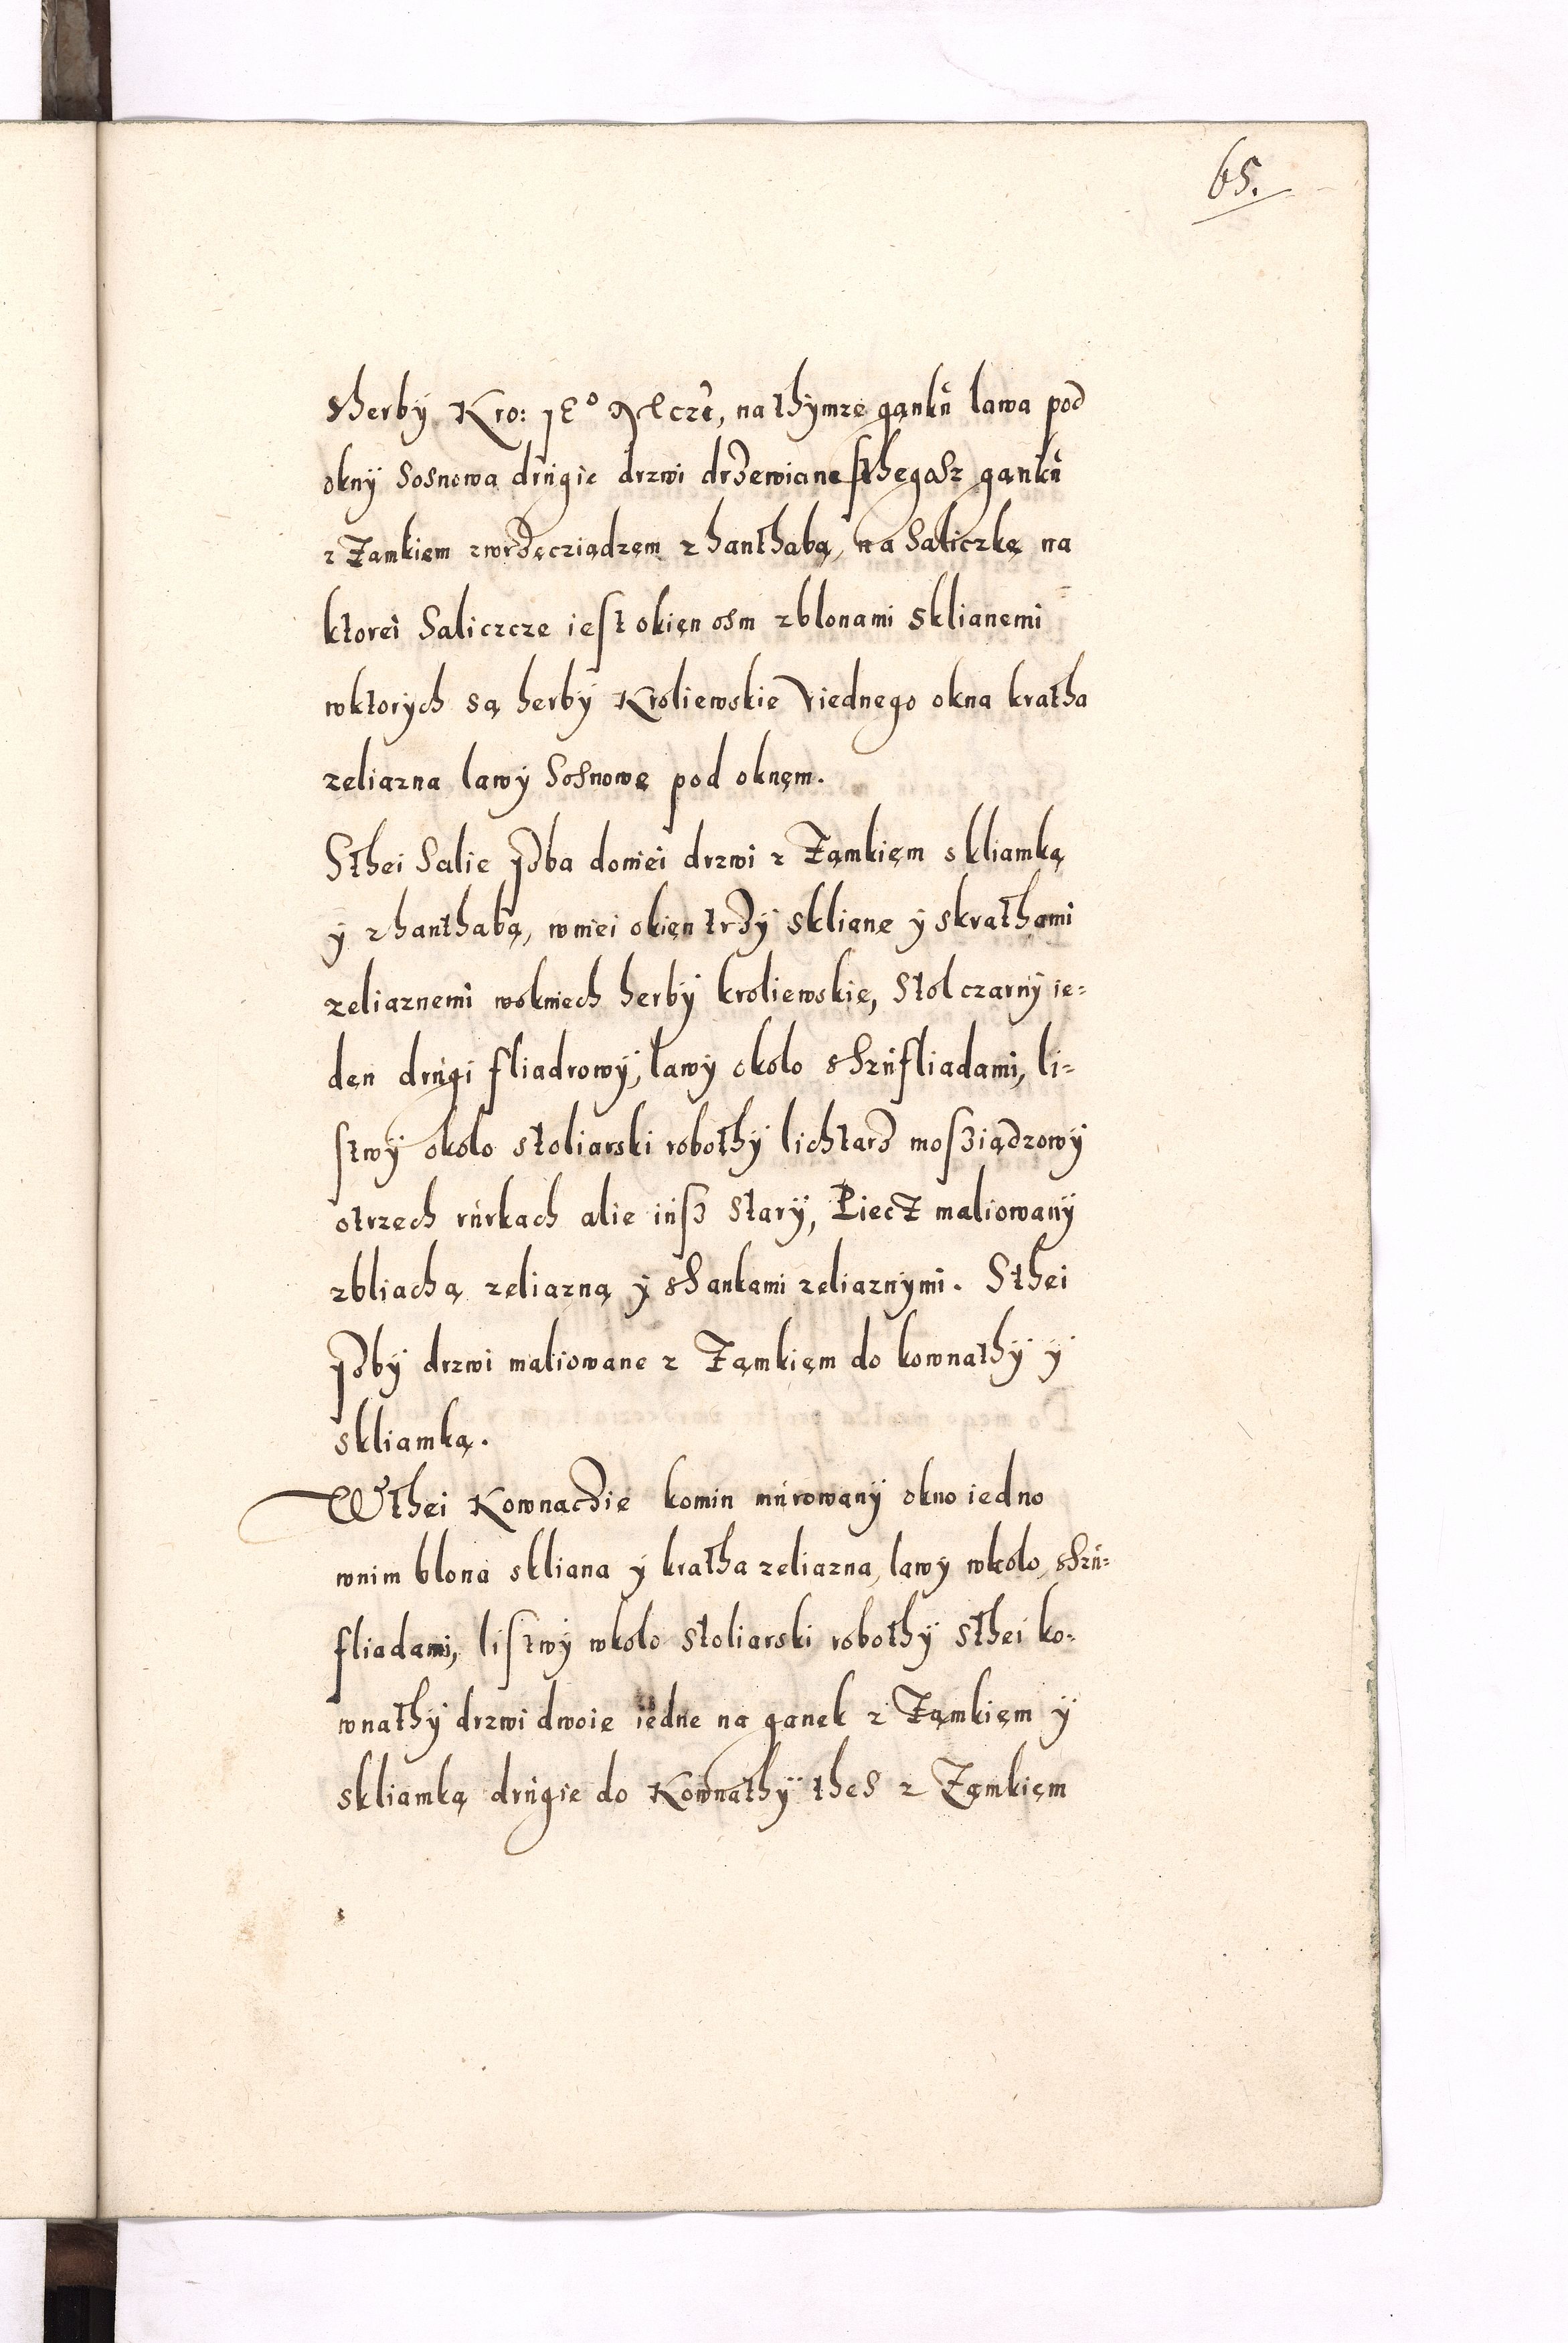 65.
sherby Kro: JE° Mczi, na thymze gąnkú lawa pod
okny Sosnowa drúgie drzwi drzewiane sthegosz gąnkú
z Zamkięm zwrzęcziądzęm z hanthabą, na Saliczkę na
ktorei Saliczcze iest okięn osm zblonami Sklianemi
wktorych są herby Kroliewskie Viednego okna kratha
zeliazna lawy Sosnowe pod oknęm.
Sthei Salie Jzba doniei drzwi z Zamkięm skliamką
y z hanthabą, wniei okięn trzy skliane y skrathami
zeliaznemi wokniech herby kroliewskie, Stol czarny ie-
dęn drúgi fliadrowy, lawy około sszúfliadami, li-
stwy około stoliarski robothy lichtarz mosziądzowy
otrzech rúrkach alie iúsz Stary, Piecz maliowany
zbliachą zeliazną y shankami zeliaznymi. Sthei
Jzby drzwi maliowane z Zamkięm do kownathy y
skliamką.
Wthei Kownaczie komin múrowany okno iedno
wnim blona skliana y kratha zeliazna, lawy wkolo, sszú-
fliadami, listwy wkolo Stoliarski robothy Sthei ko-
wnathy drzwi dwoie iedne na ganek z Zamkięm y
skliamką drúgie do Kownathy thes z Zamkięm